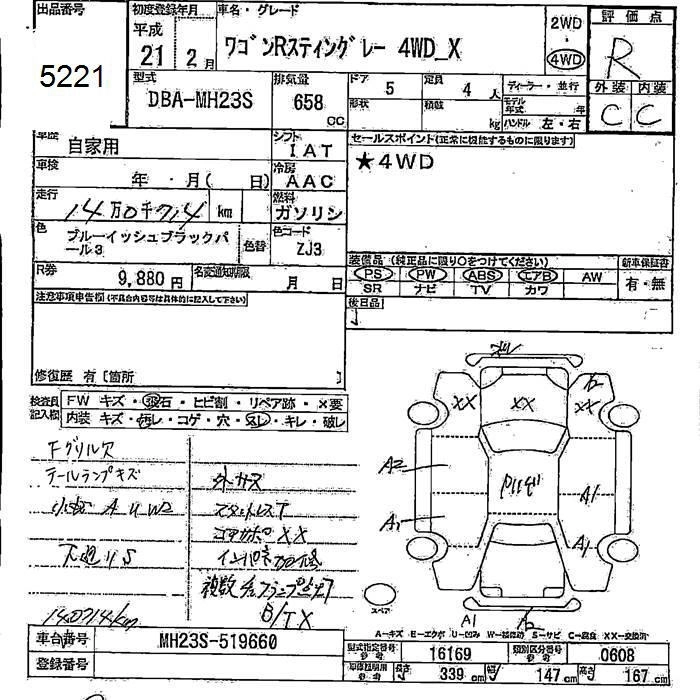 出品番号
5221
初度登録年月
平成
21 2月
車名・グレード
ワゴンRスティングレー 4WD_X
2WD
・
4WD
評価点
R
外装 内装
C C
型式
DBA-MH23S
排気量
658
CC
ドア
5
定員
4 人
形状
積数
kg
ディーラー・並行
モデル年式 年
ハンドル 左・右
車歴
自家用
シフト
IAT
車検
年・月( 日)
冷房
AAC
走行
14万0千714 km
燃料
ガソリン
色
ブルーイッシュブラックパール3
色替
色コード
ZJ3
R券
9,880 円
名変通知期限
月 日
セールスポイント(正常に機能するものに限ります)
★4WD
装備品(純正品に限り○をつけてください)
PS PW ABS エアB AW
SR ナビ TV カワ
新車保証書
有・無
後日品
注意事項申告欄(不具合内容等は具体的に記入して下さい)
修復歴 有[箇所 ]
検査員記入欄
FW キズ・飛石・ヒビ割・リペア跡・×要
内装 キズ・汚レ・コゲ・穴・スレ・キレ・破レ
Fグリル欠
テールランプキズ
小傷 A U W2
下廻りS
140714km
外キズ
スタッドレスT
コアサポXX
B/TX
XX
XX
XX
A2
A1
A1
A1
A1
スペア
A-キズ E-エクボ U-凹み W-補修跡 S-サビ C-腐食 XX-交換済
車台番号
MH23S-519660
登録番号
型式指定番号
16169
類別区分番号
0608
長さ 339 cm
幅 147 cm
高さ 167 cm